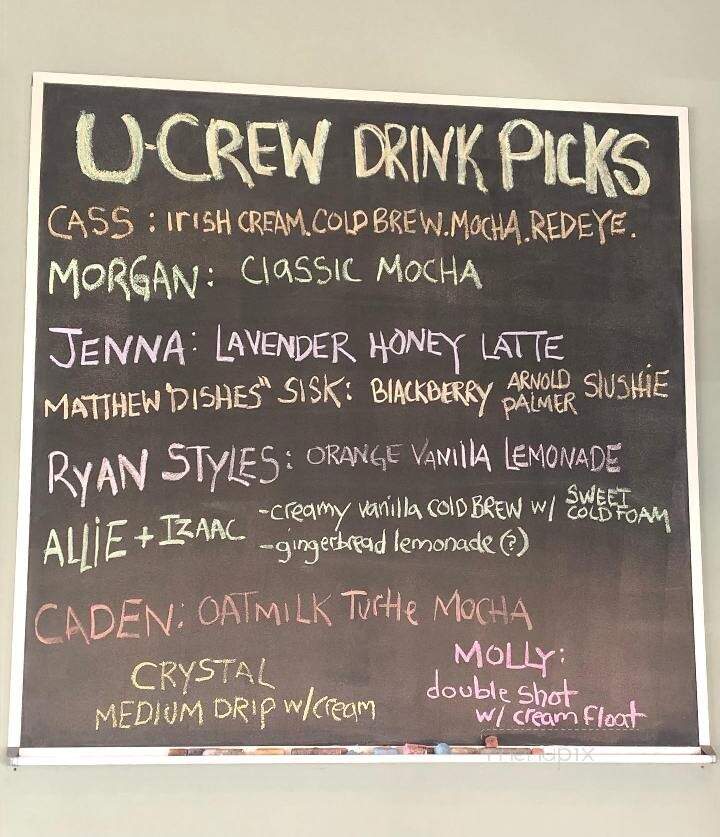 U-CREW DRINK PICKS
CASS: IRISH CREAM. COLD BREW. MOCHA. REDEYE.
MORGAN: CLASSIC MOCHA
JENNA: LAVENDER HONEY LATTE
MATTHEW "DISHES" SISK: BLACKBERRY ARNOLD PALMER SLUSHIE
RYAN STYLES: ORANGE VANILLA LEMONADE
ALLiE + IZAAC
-creamy vanilla COLD BREW w/ SWEET COLD FOAM
-gingerbread lemonade (?)
CADEN: OATMILK Turtle MOCHA
CRYSTAL
MEDIUM DRIP w/cream
MOLLY:
double shot
w/ cream float
menupix